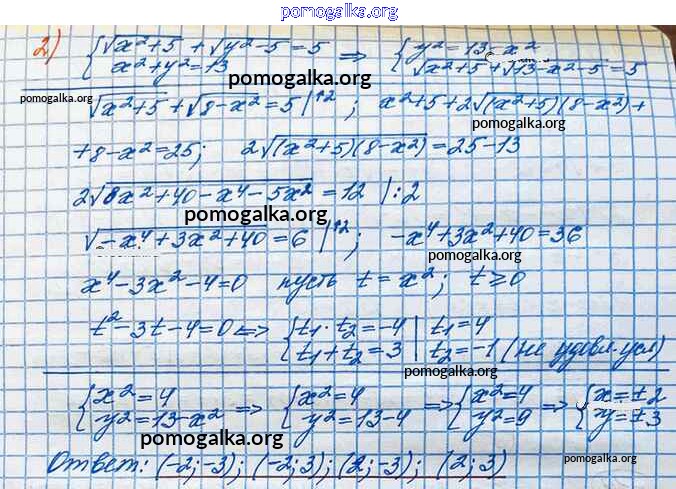 pomogalka.org
2) {√x²+5 + √y²-5 = 5 => {y² = 13-x²
x²+y² = 13 √x²+5 + √13-x²-5 = 5
pomogalka.org
pomogalka.org √x²+5 + √8-x² = 5 |↑2 ; x²+5+2√(x²+5)(8-x²) +
pomogalka.org
+8-x² = 25; 2√(x²+5)(8-x²) = 25-13
2√8x²+40-x⁴-5x² = 12 |:2
pomogalka.org
√-x⁴+3x²+40 = 6 |↑2 ; -x⁴+3x²+40 = 36
pomogalka.org
x⁴-3x²-4=0 пусть t = x²; t ≥ 0
pomogalka.org
t²-3t-4=0 <=> {t₁·t₂=-4 | t₁=4
t₁+t₂=3 | t₂=-1 (не удовл. усл)
pomogalka.org
{x²=4 => {x²=4 => {x²=4 => {x=±2
y²=13-x² y²=13-4 y²=9 y=±3
pomogalka.org
Ответ: (-2;-3); (-2;3); (2;-3); (2;3)
pomogalka.org